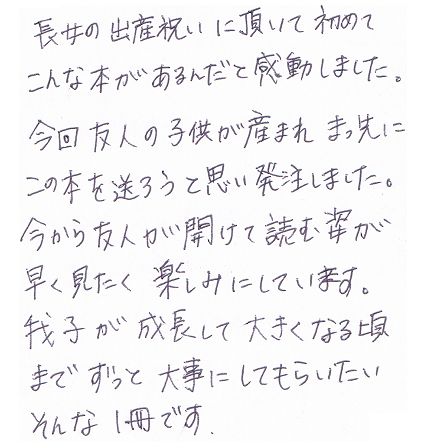 長女の出産祝いに頂いて初めて
こんな本があるんだと感動しました。
今回友人の子供が産まれまっ先に
この本を送ろうと思い発注しました。
今から友人が開けて読む姿が
早く見たく楽しみにしています。
我子が成長して大きくなる頃
までずっと大事にしてもらいたい
そんな1冊です.